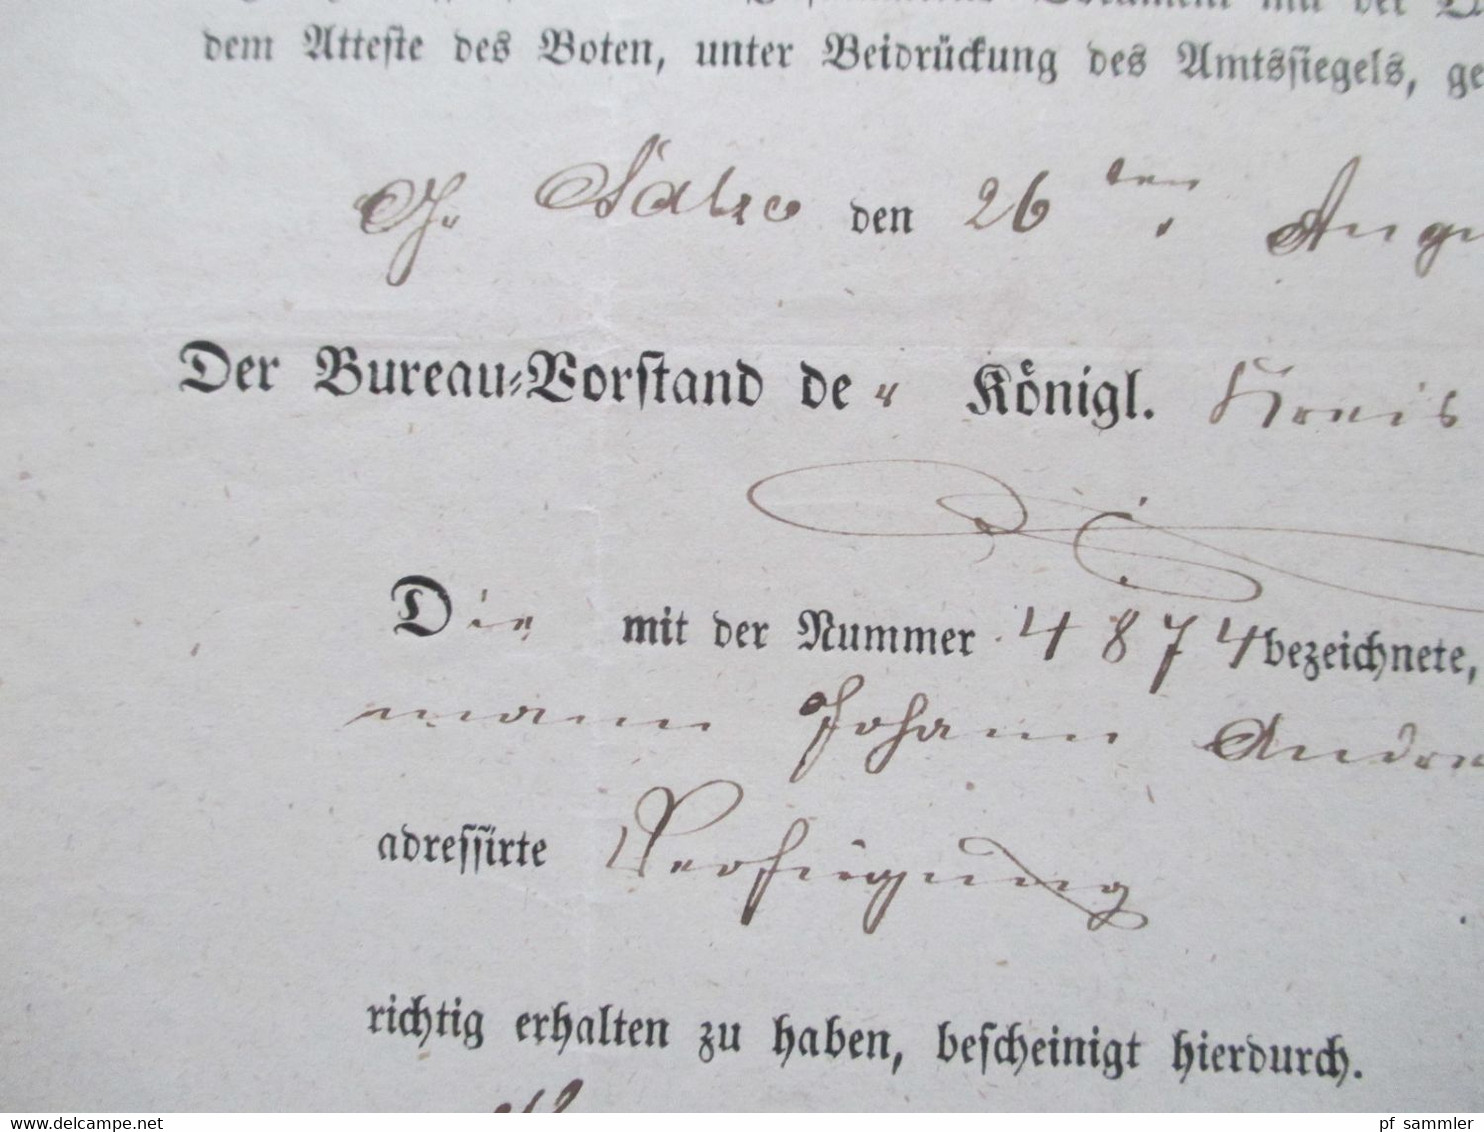 dem Atteste des Boten, unter Beidrückung des Amtssiegels, ge
Gr. Salze den 26 ten Augu
Der Bureau-Vorstand der Königl. Kreis
Die mit der Nummer 4874 bezeichnete,
mann Johann Andre
adressirte Verfügung
richtig erhalten zu haben, bescheinigt hierdurch.
www.delcampe.net
pf_sammler